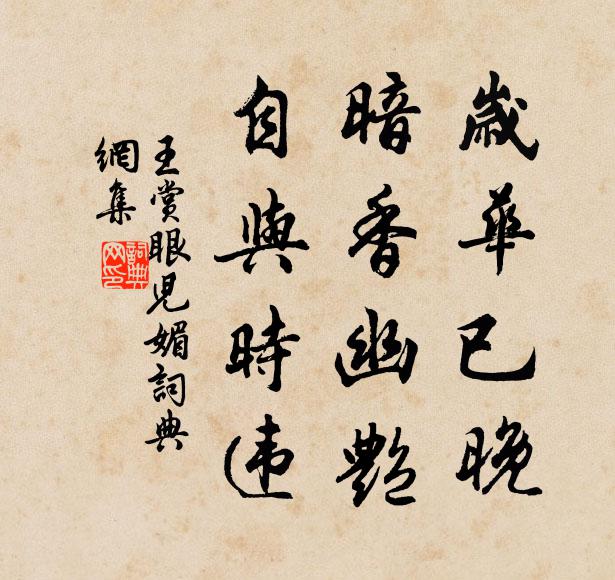 歲華已晚
暗香幽艷
自與時违
王賞眼児媚詞典
網集
詞典
网印